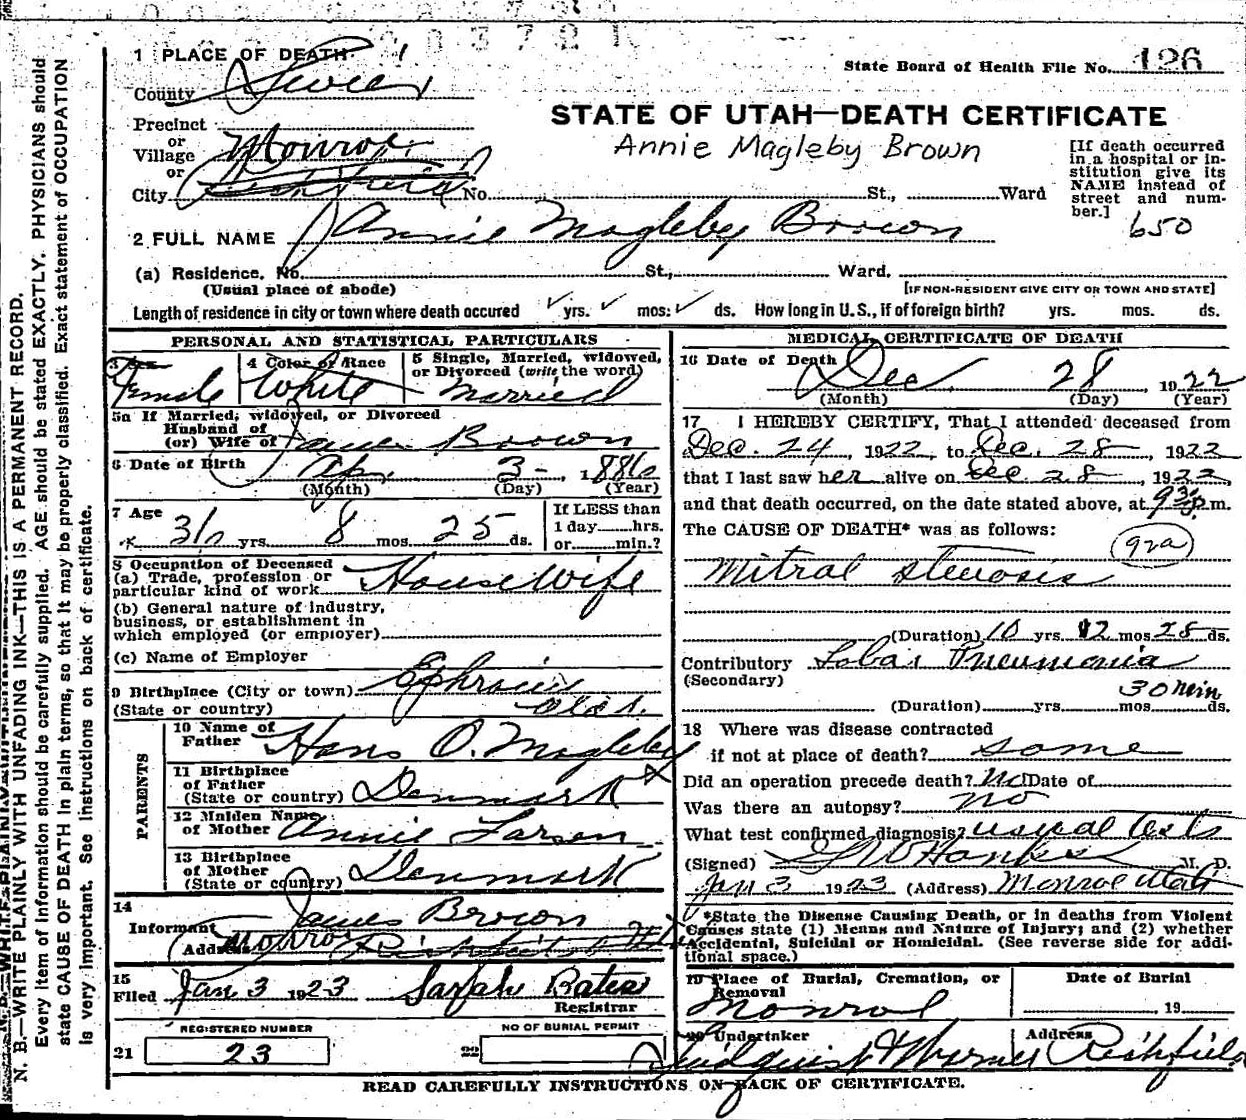 1 PLACE OF DEATH
State Board of Health File No. 126
County Sevier
STATE OF UTAH—DEATH CERTIFICATE
Precinct
or
Village Monroe
or
City Richfield No. St., Ward
Annie Magleby Brown
[If death occurred
in a hospital or in-
stitution give its
NAME instead of
street and num-
ber.]
650
2 FULL NAME Annie Magleby Brown
(a) Residence. No. St., Ward.
(Usual place of abode) [IF NON-RESIDENT GIVE CITY OR TOWN AND STATE]
Length of residence in city or town where death occured yrs. mos. ds. How long in U. S., if of foreign birth? yrs. mos. ds.
PERSONAL AND STATISTICAL PARTICULARS
3 Female 4 Color or Race White 5 Single, Married, Widowed, or Divorced (write the word) Married
5a If Married, widowed, or Divorced
Husband of
(or) Wife of James Brown
6 Date of Birth Ap. 3- 1886
(Month) (Day) (Year)
7 Age 36 yrs. 8 mos. 25 ds.
If LESS than
1 day hrs.
or min.?
8 Occupation of Deceased
(a) Trade, profession or
particular kind of work House Wife
(b) General nature of industry,
business, or establishment in
which employed (or employer)
(c) Name of Employer
9 Birthplace (City or town) Ephraim
(State or country)
PARENTS
10 Name of
Father Hans O. Magleby
11 Birthplace
of Father
(State or country) Denmark
12 Maiden Name
of Mother Annie Larsen
13 Birthplace
of Mother
(State or country) Denmark
14
Informant James Brown
Address Monroe Richfield
15
Filed Jan 3 1923 Sarah Bates
Registrar
REGISTERED NUMBER
21 23
NO OF BURIAL PERMIT
22
MEDICAL CERTIFICATE OF DEATH
16 Date of Death Dec. 28 1922
(Month) (Day) (Year)
17 I HEREBY CERTIFY, That I attended deceased from
Dec. 24, 1922, to Dec. 28, 1922
that I last saw her alive on Dec. 28, 1922
and that death occurred, on the date stated above, at 9 30 p.m.
The CAUSE OF DEATH* was as follows:
92a
Mitral stenosis
(Duration) 10 yrs 12 mos 28 ds.
Contributory Lobar Pneumonia
(Secondary)
30 min
(Duration) yrs. mos. ds.
18 Where was disease contracted
if not at place of death? same
Did an operation precede death? No Date of
Was there an autopsy? no
What test confirmed diagnosis? usual tests
(Signed) Hanks M. D.
Jan 3 1923 (Address) Monroe Utah
*State the Disease Causing Death, or in deaths from Violent
Causes state (1) Means and Nature of Injury; and (2) whether
Accidental, Suicidal or Homicidal. (See reverse side for addi-
tional space.)
19 Place of Burial, Cremation, or
Removal
Monroe
Date of Burial
19
20 Undertaker
Address Richfield
READ CAREFULLY INSTRUCTIONS ON BACK OF CERTIFICATE.
N. B.—WRITE PLAINLY WITH UNFADING INK—THIS IS A PERMANENT RECORD.
Every item of information should be carefully supplied. AGE should be stated EXACTLY. PHYSICIANS should
state CAUSE OF DEATH in plain terms, so that it may be properly classified. Exact statement of OCCUPATION
is very important. See instructions on back of certificate.